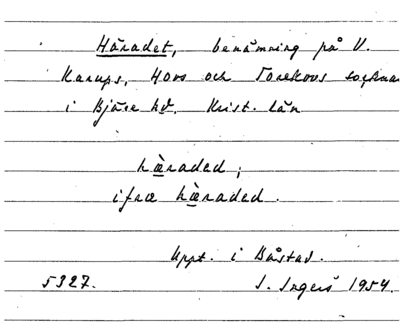 Häradet, benämning på V.
Karups, Hovs och Torekovs sockna
i Bjäre hd. Krist. län
hæraded;
ifræ hæraded.
Uppt. i Båstad.
5327. I. Ingers 1954.